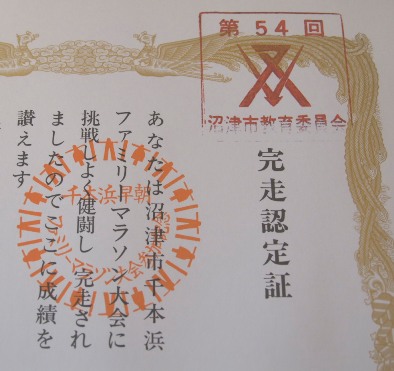 第54回
沼津市教育委員会
完走認定証
あなたは沼津市千本浜
ファミリーマラソン大会に
挑戦しよく健闘し 完走され
ましたのでここに成績を
讃えます
千本浜早朝